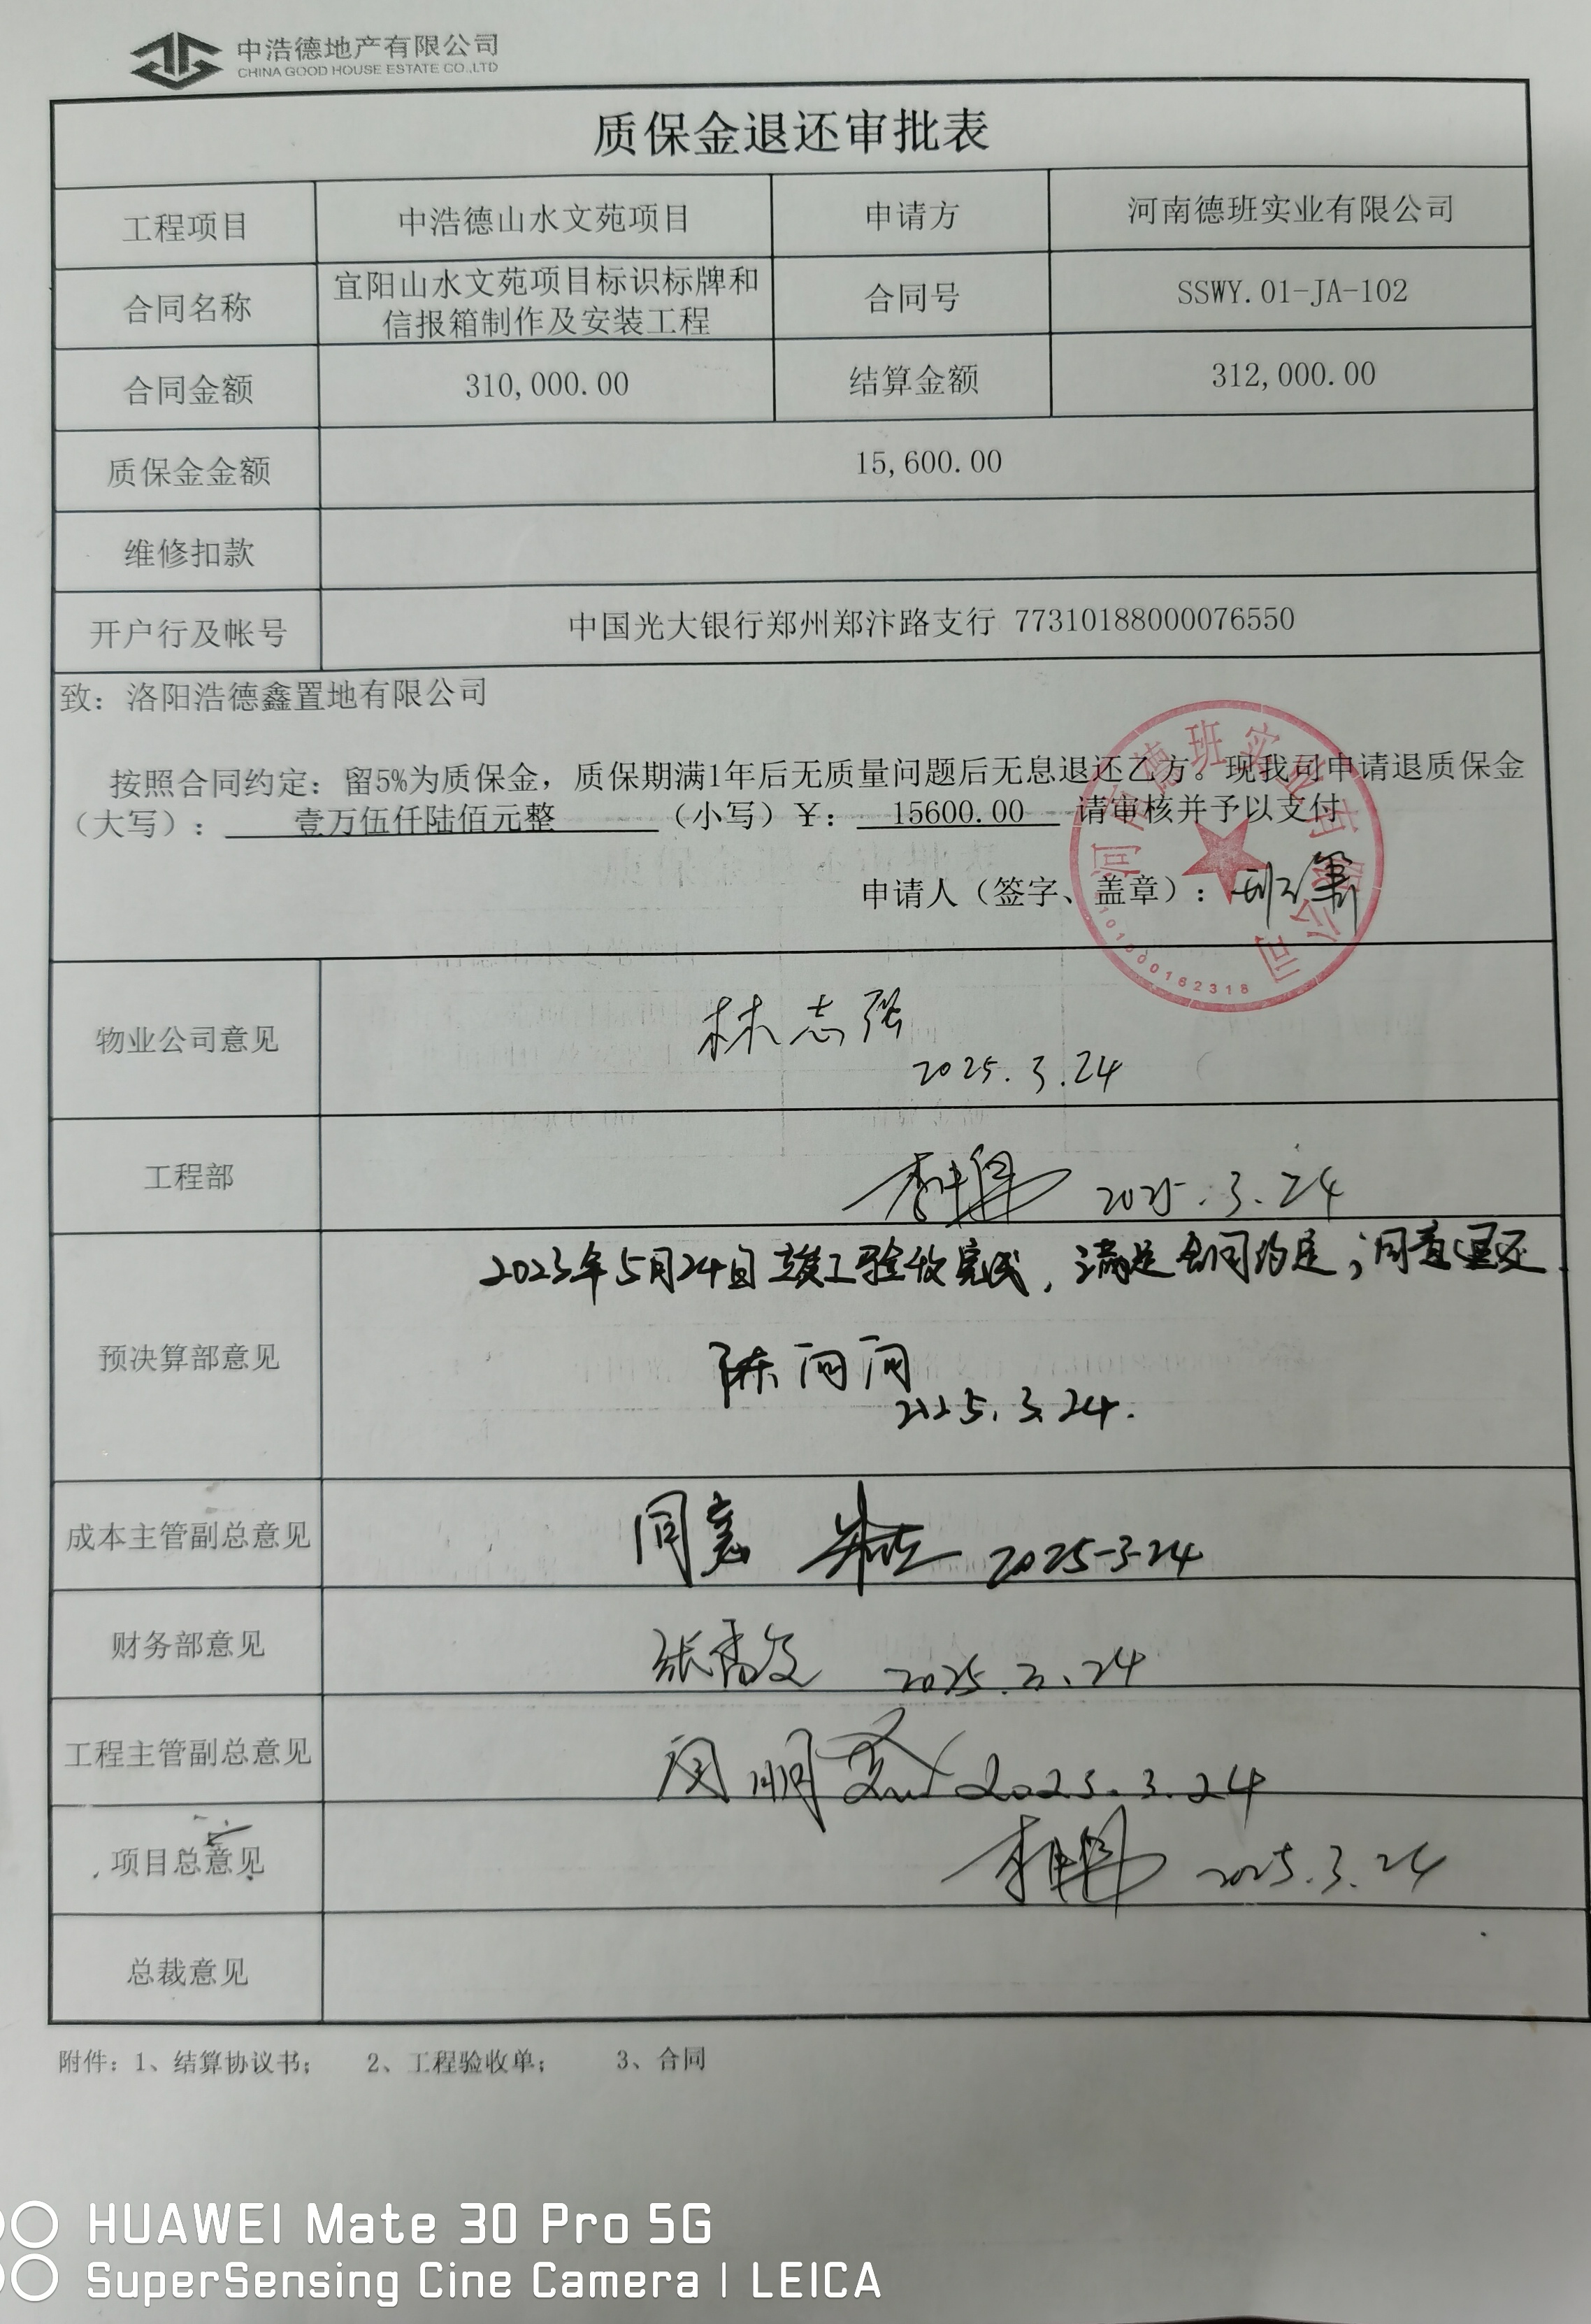 中浩德地产有限公司
CHINA GOOD HOUSE ESTATE CO.,LTD
质保金退还审批表
工程项目 中浩德山水文苑项目 申请方 河南德班实业有限公司
合同名称 宜阳山水文苑项目标识标牌和信报箱制作及安装工程 合同号 SSWY.01-JA-102
合同金额 310,000.00 结算金额 312,000.00
质保金金额 15,600.00
维修扣款
开户行及帐号 中国光大银行郑州郑汴路支行 77310188000076550
致：洛阳浩德鑫置地有限公司
按照合同约定：留5%为质保金，质保期满1年后无质量问题后无息退还乙方。现我司申请退质保金
（大写）：壹万伍仟陆佰元整（小写）￥：15600.00 请审核并予以支付
申请人（签字、盖章）：
河南德班实业有限公司
物业公司意见 林志强
2025.3.24
工程部 2025.3.24
2023年5月24日竣工验收完成，满足合同约定；同意退还.
预决算部意见 陈
2025.3.24.
成本主管副总意见 同意 2025-3-24
财务部意见 张 2025.3.24
工程主管副总意见 明 2025.3.24
项目总意见 2025.3.24
总裁意见
附件：1、结算协议书； 2、工程验收单； 3、合同
HUAWEI Mate 30 Pro 5G
SuperSensing Cine Camera | LEICA